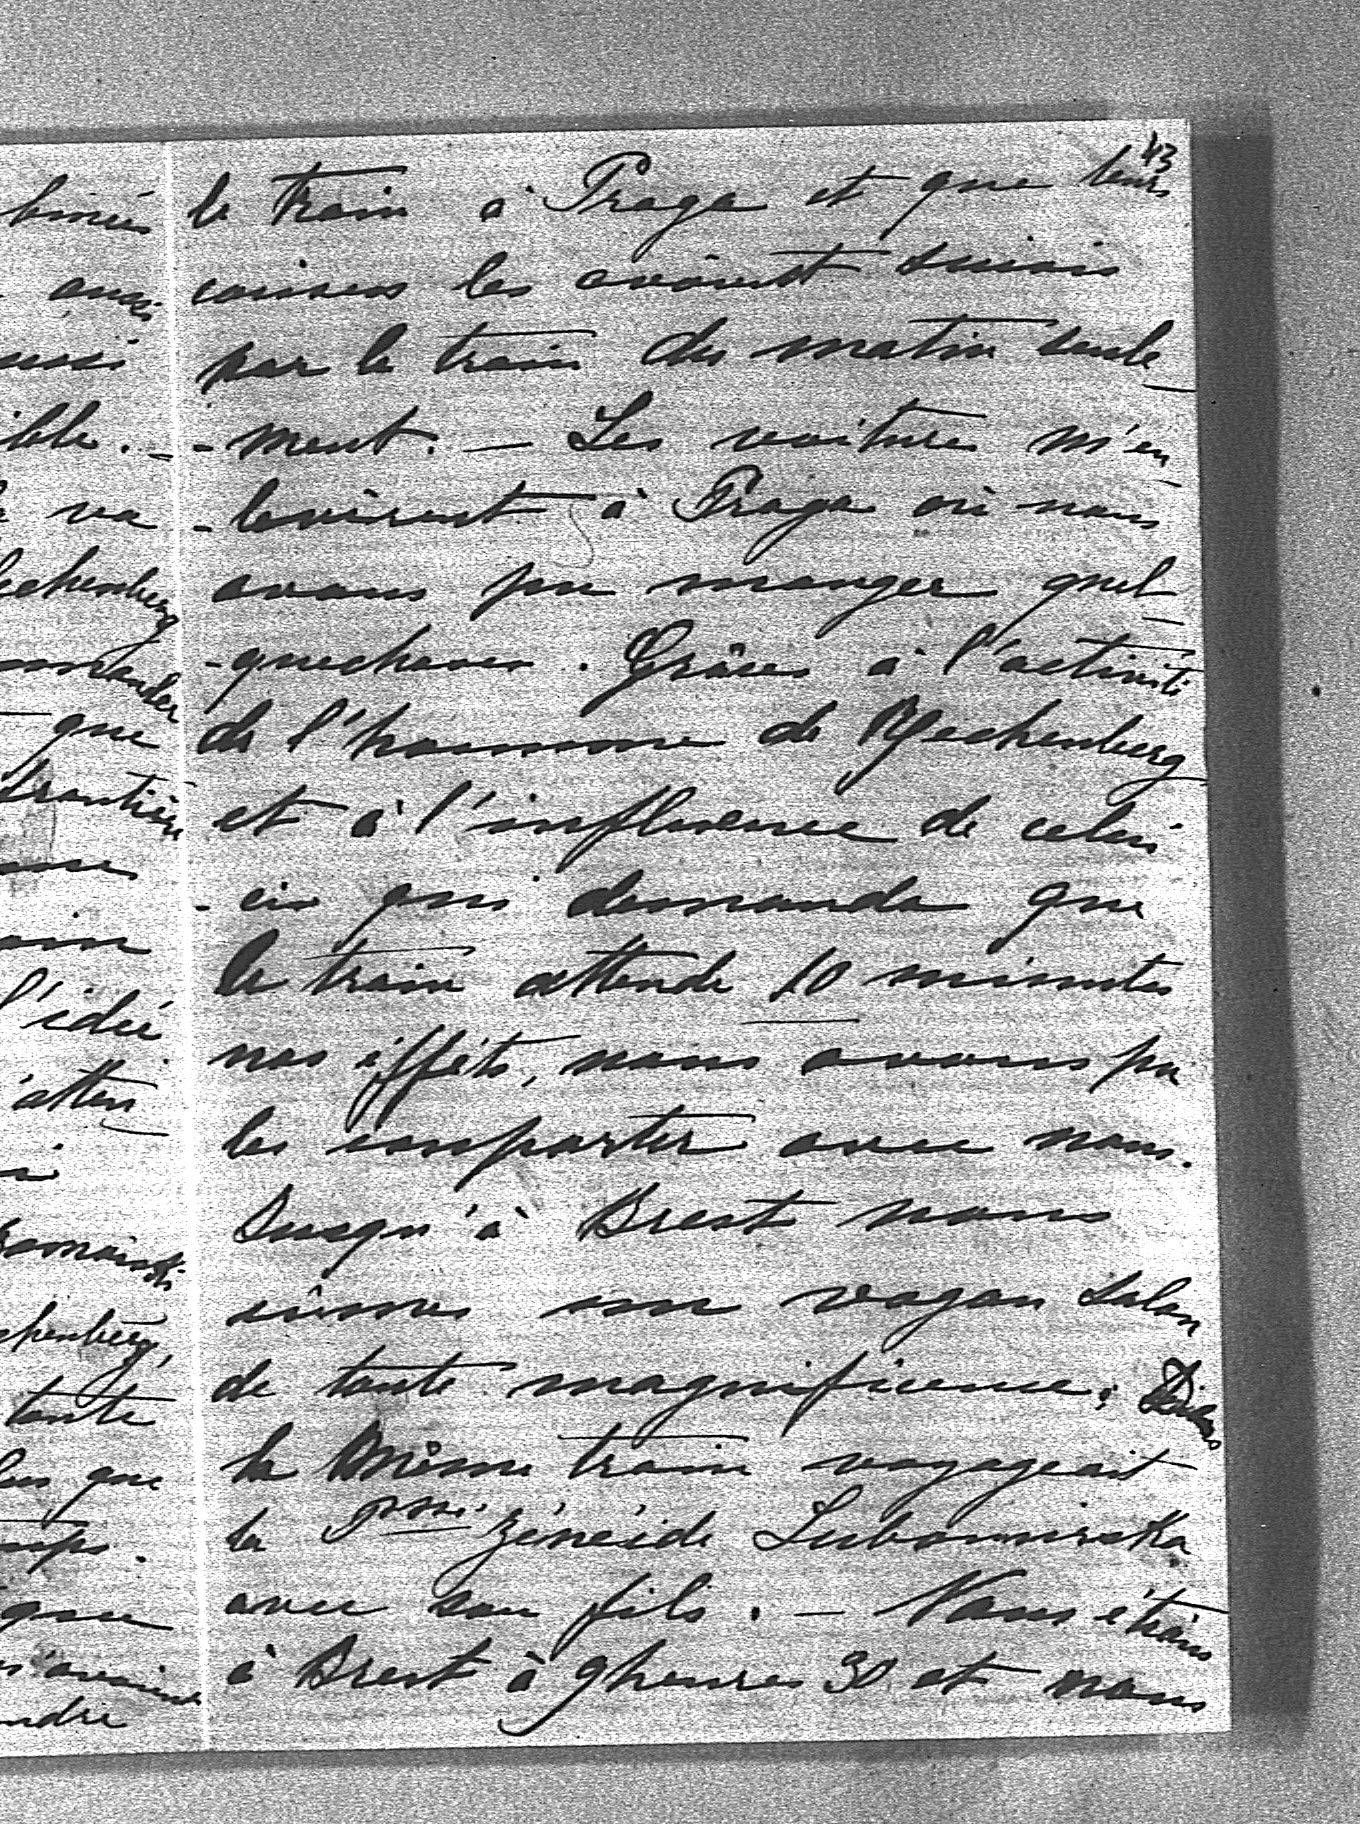 43
le train à Praga et que leurs
caisses les avaient suivis
par le train du matin seule
-ment. — Les voitures m'en
-levèrent à Praga où nous
avons pu manger quel
-quechoses. Grâces à l'activité
de l'homme de Rechenberg
et à l'influence de celui
-ci qui demanda que
le train attende 10 minutes
nos effets, nous avons pu
les emporter avec nous.
Jusqu'à Brest nous
eûmes un vagon salon
de toute magnificence; Dans
le même train voyageait
la Pesse Zéneide Lubomirska
avec son fils. — Nous étions
à Brest à 9 heures 30 et nous
que
ible.
va
echenberg
mander
que
frontière
l'idée
atten
chenberg,
toute
que